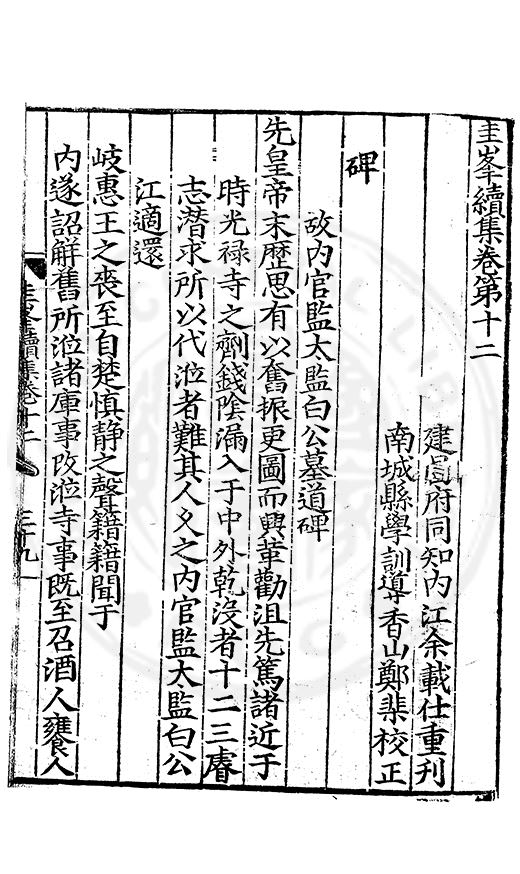 圭峯續集卷第十二
建圖府同知內江余載仕重刊
南城縣學訓導香山鄭棐校正
碑
故內官監太監白公墓道碑
先皇帝末歷思有以奮振更圖而興革勸沮先篤諸近于
時光禄寺之劑錢陰漏入于中外乾没者十二三睿
志潜求所以代涖者難其人久之內官監太監白公
江適還
岐惠王之喪至自楚慎静之聲籍籍聞于
內遂詔解舊所涖諸庫事改涖寺事既至召酒人饔人
圭峯續集卷十二
三十九